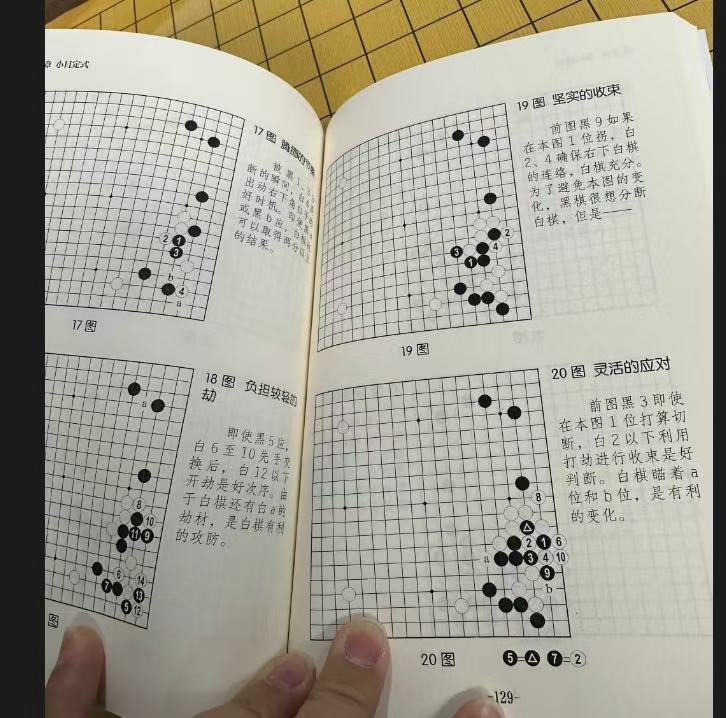 章 小目定式
17 图
被黑1、3
断的瞬间,白4
出动右下角
好时机。
或黑b应,白棋
可以取得两分以上
的结果。
2
1
3
b
4
a
17 图
18 图 负担较轻的
劫
即使黑5应,
白6至10先手交
换后,白12以下
开劫是好次序。由
于白棋还有白a的
劫材,是白棋有利
的攻防。
a
8
10
11
9
6
14
7
13
5
12
图
19 图 坚实的收束
前图黑9如果
在本图1位拐,白
2、4确保右下白棋
的连络,白棋充分。
为了避免本图的变
化,黑棋很想分断
白棋,但是——
2
3
4
1
19 图
20 图 灵活的应对
前图黑3即使
在本图1位打算切
断,白2以下利用
打劫进行收束是好
判断。白棋瞄着a
位和b位,是有利
的变化。
8
2
1
6
a
3
4
10
9
b
20 图
5=△ 7=2
-129-